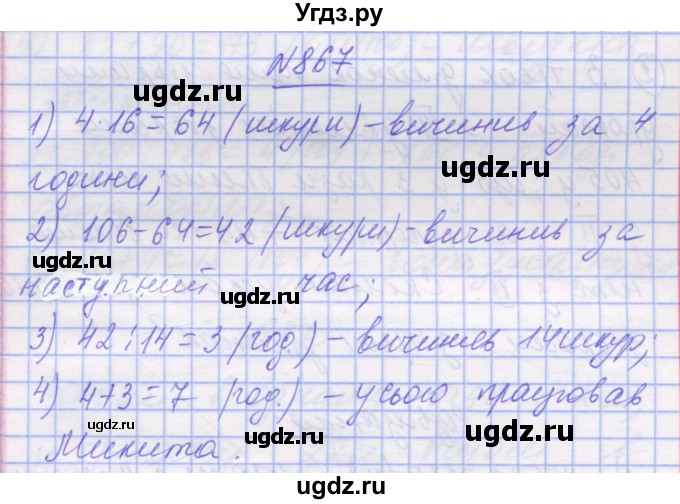 Угдз.ру
№867
1) 4·16=64 (шкури)-вичинив за 4
години;
2) 106-64=42 (шкури)-вичинив за
наступний час;
3) 42:14=3 (год.) - вичиняв 14 шкур;
4) 4+3=7 (год.) - усього працював
Микита.
ugdz.ru
ugdz.ru
ugdz.ru
ugdz.ru
ugdz.ru
ugdz.ru
ugdz.ru
ugdz.ru
ugdz.ru